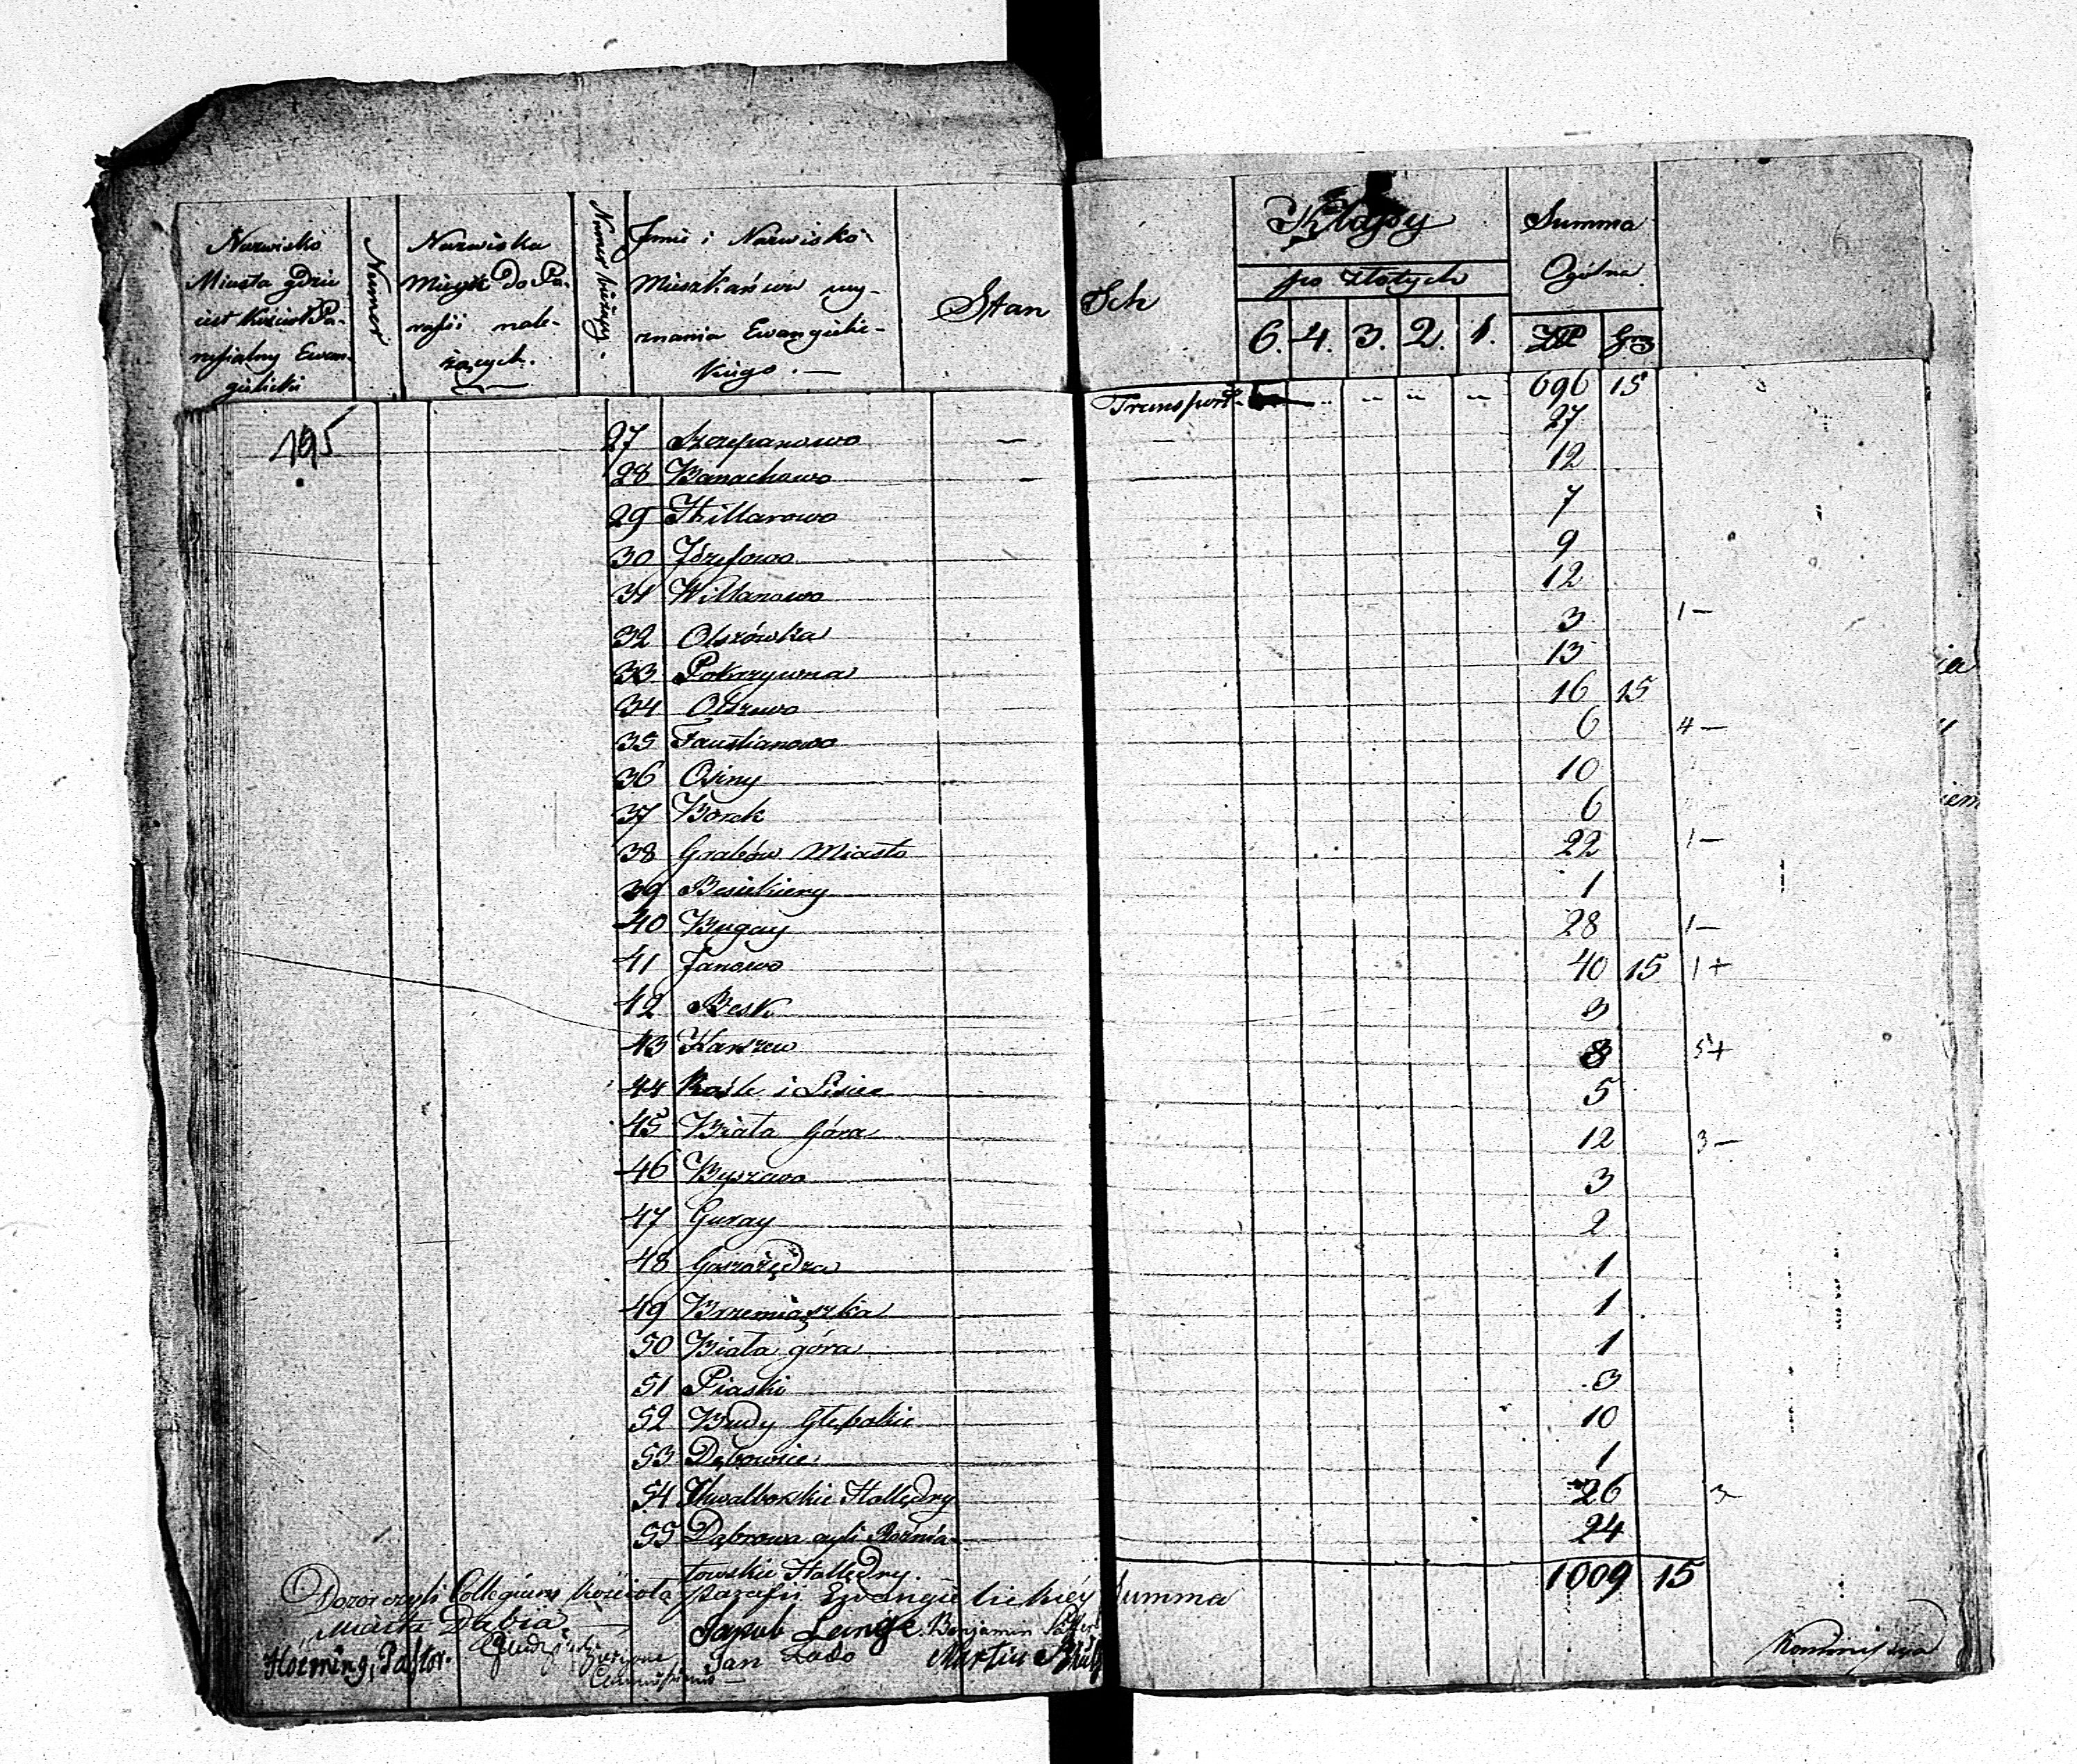 Nazwisko
Miasta gdzie
iest Kościoł Pa-
rafialny Ewan-
gielicki
Numer
Nazwiska
Mieysc Do Pa-
rafii nale-
żących.
Numer bieżący.
Jmie i Nazwisko
Mieszkańców wy-
znania Ewangelic-
kiego.
Stan Sch
Klassy
po złotych
6. 4. 3. 2. 1.
Summa
Ogólna
Złp Gr
195
Transport 696 15
27 Szczepanowo 27
28 Banachowo 12
29 Hillarowo 7
30 Józefowo 9
31 Willanowo 12
32 Olszówka 3 1 —
33 Pokrzywna 13
34 Olszewo 16 15
35 Faustianowo 6 4 —
36 Osiny 10
37 Borek 6
38 Grabów Miasto 22 1 —
39 Besiekiery 1
40 Bugay 28 1 —
41 Janowo 40 15 1 +
42 Besk 3
43 Karszew 8 5 +
44 Rośle i Lisice 5
45 Biała Góra 12 3 —
46 Byszewo 3
47 Guray 2
48 1
49 1
50 Biała góra 1
51 Piaski 3
52 Budy Głębokie 10
53 Dębowice 1
54 Chwalborskie Hollędry 26 3 —
55 Dąbrowa czyli Roznia- 24
towskie Hollędry.
Summa 1009 15
Dozor czyli Collegium kościoła parafii Ewangielickiéy
Miasta Dąbia
Hoeming, Pastor.
Jakub Lange. Benjamin
Jan Martin